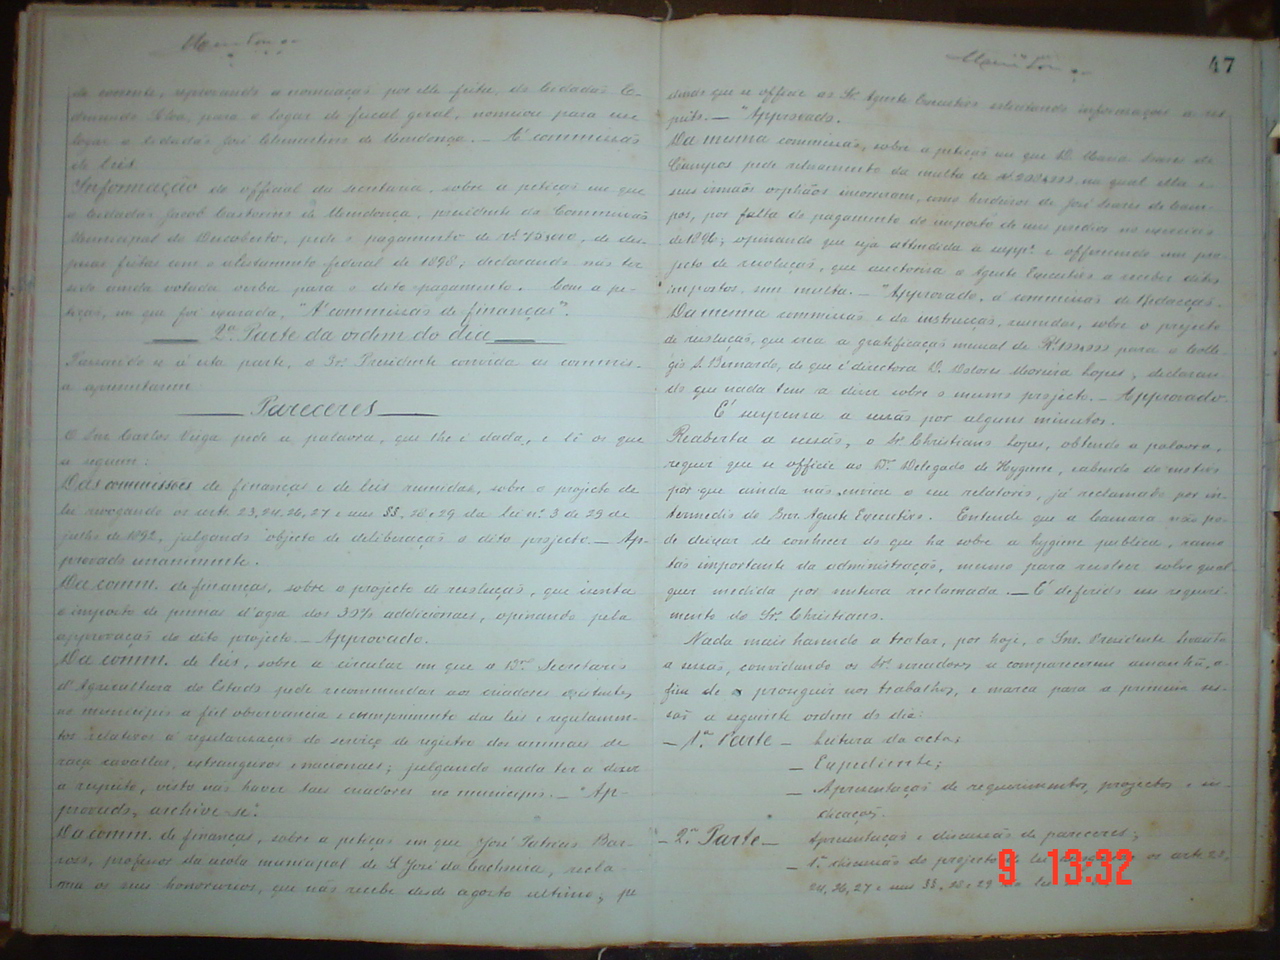 do corrente, approvando a nomeação por elle feita, do Cidadão E-
dmundo Silva, para o logar de fiscal geral, nomeou para esse
logar o cidadão José Clementino de Mendonça. — Á commissão
de leis.
Informação do official da secretaria, sobre a petição em que
o Cidadão Jacob Castorino de Mendonça, presidente da Commissão
Municipal do Descoberto, pede o pagamento de rs. 75$000, de des-
pesas feitas com o alistamento federal de 1898; declarando não ter
sido ainda votada verba para o dito pagamento. Com a pe-
tição, em que foi exarada, "Á commissão de finanças".
2ª Parte da ordem do dia
Passando-se á esta parte, o Snr. Presidente convida as commis.
a apresentarem
Pareceres
O Snr. Carlos Veiga pede a palavra, que lhe é dada, e lê os que
se seguem:
Das commissões de finanças e de leis reunidas, sobre o projecto de
lei revogando os arts. 23, 24, 26, 27 e seus §§, 28 e 29 da lei nº 3 de 29 de
julho de 1892, julgando objecto de deliberação o dito projecto. — Ap-
provado unanimente.
Da comm. de finanças, sobre o projecto de resolução, que isenta
o imposto de pennas d'agoa dos 30% addicionaes, opinando pela
approvação do dito projecto. — Approvado.
Da comm. de leis, sobre a circular em que o Dr. Secretario
d'Agricultura do Estado pede recommendar aos criadores existentes
no municipio a fiel observancia e cumprimento das leis e regulamen-
tos relativos á regularisação do serviço de registro dos animaes de
raça cavallar, estrangeiros e nacionaes; julgando nada ter a dizer
a respeito, visto não haver taes criadores no municipio. — "Ap-
provado, archive-se".
Da comm. de finanças, sobre a petição em que José Bar-
roso, professor da escola municipal de S. José da Cachoeira, recla-
ma os seus honorarios, que não recebe desde agosto ultimo;
47
dindo que se officie ao Sr. Agente Executivo solicitando informações a res-
peito. — "Approvado.
Da mesma commissão, sobre a petição em que D. Maria Soares de
Campos pede relevamento da multa de na qual ella e
seus irmãos orphãos incorreram, como herdeiros de José Soares de Cam-
pos, por falta de pagamento do imposto de seus predios no exercicio
de 1896; opinando que seja attendida a suppe. e offerecendo um pro-
jecto de resolução, que auctorisa o Agente Executivo a receber ditos
impostos, sem multa. — "Approvado, á commissão de Redacção.
Da mesma commissão e da instrucção, reunidas, sobre o projecto
de resolução, que crea a gratificação mensal de para o Colle-
gio S. Bernardo, de que é directora D. Dolores Moreira Lopes; declaran-
do que nada tem a dizer sobre o mesmo projecto. — Approvado.
É suspensa a sessão por alguns minutos.
Reaberta a sessão, o Sr. Christiano Lopes, obtendo a palavra,
requer que se officie ao Dr. Delegado de Hygiene, sabendo do motivo
por que ainda não enviou o seu relatorio, já reclamado por in-
termedio do Snr. Agente Executivo. Entende que a Camara não po-
de deixar de conhecer do que ha sobre a hygiene publica, ramo
tão importante da administração, mesmo para resolver sobre qual
quer medida por ventura reclamada. — É deferido seu requeri-
mento do Sr. Christiano.
Nada mais havendo a tratar, por hoje, o Snr. Presidente levanta
a sessão, convidando os Srs. vereadores a comparecerem amanhã, a
fim de proseguir nos trabalhos, e marca para a primeira ses-
são a seguinte ordem do dia:
— 1ª Parte — Leitura da acta;
— Expediente;
— Apresentação de requerimentos, projectos e in-
dicações.
— 2ª Parte — Apresentação e discussão de pareceres;
— 1ª discussão do projecto de lei os arts. 23,
24, 26, 27 e seus §§, 28 e 29 da lei
9 13:32